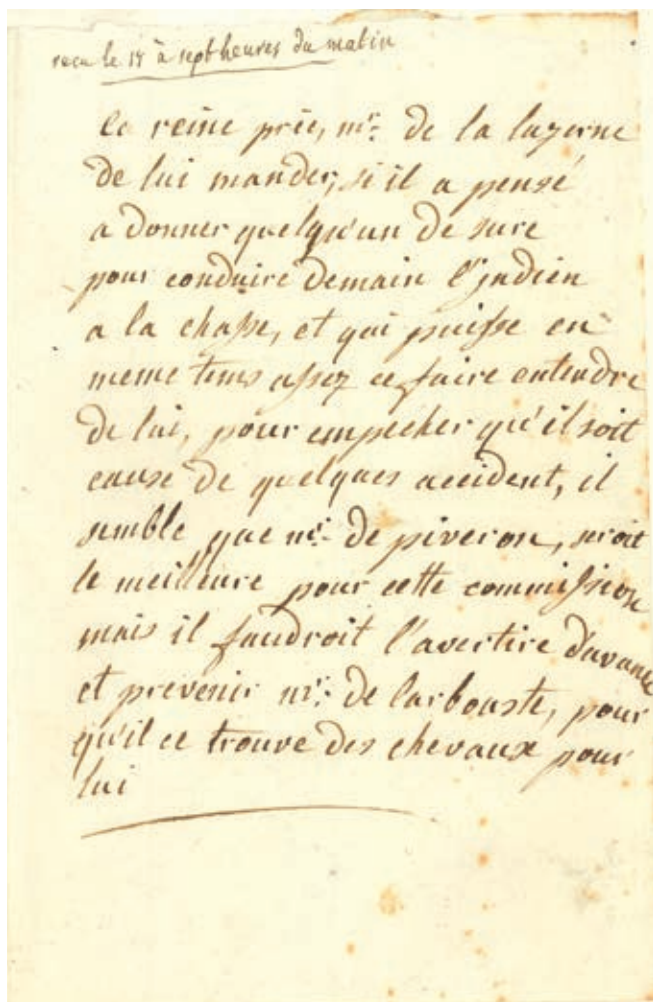 recu le 18 à sept heures du matin
la reine prie, mr. de la luzerne
de lui mander, si il a pensé
a donner quelqu'un de sure
pour conduire demain l'indien
a la chasse, et qui puisse en
meme tems assez ce faire entendre
de lui, pour empecher qu'il soit
cause de quelques accident, il
semble que mr. de piveron, seroit
le meilleure pour cette commission
mais il faudroit l'avertire d'avance
et prevenir mr. de larbouste, pour
qu'il ce trouve des chevaux pour
lui